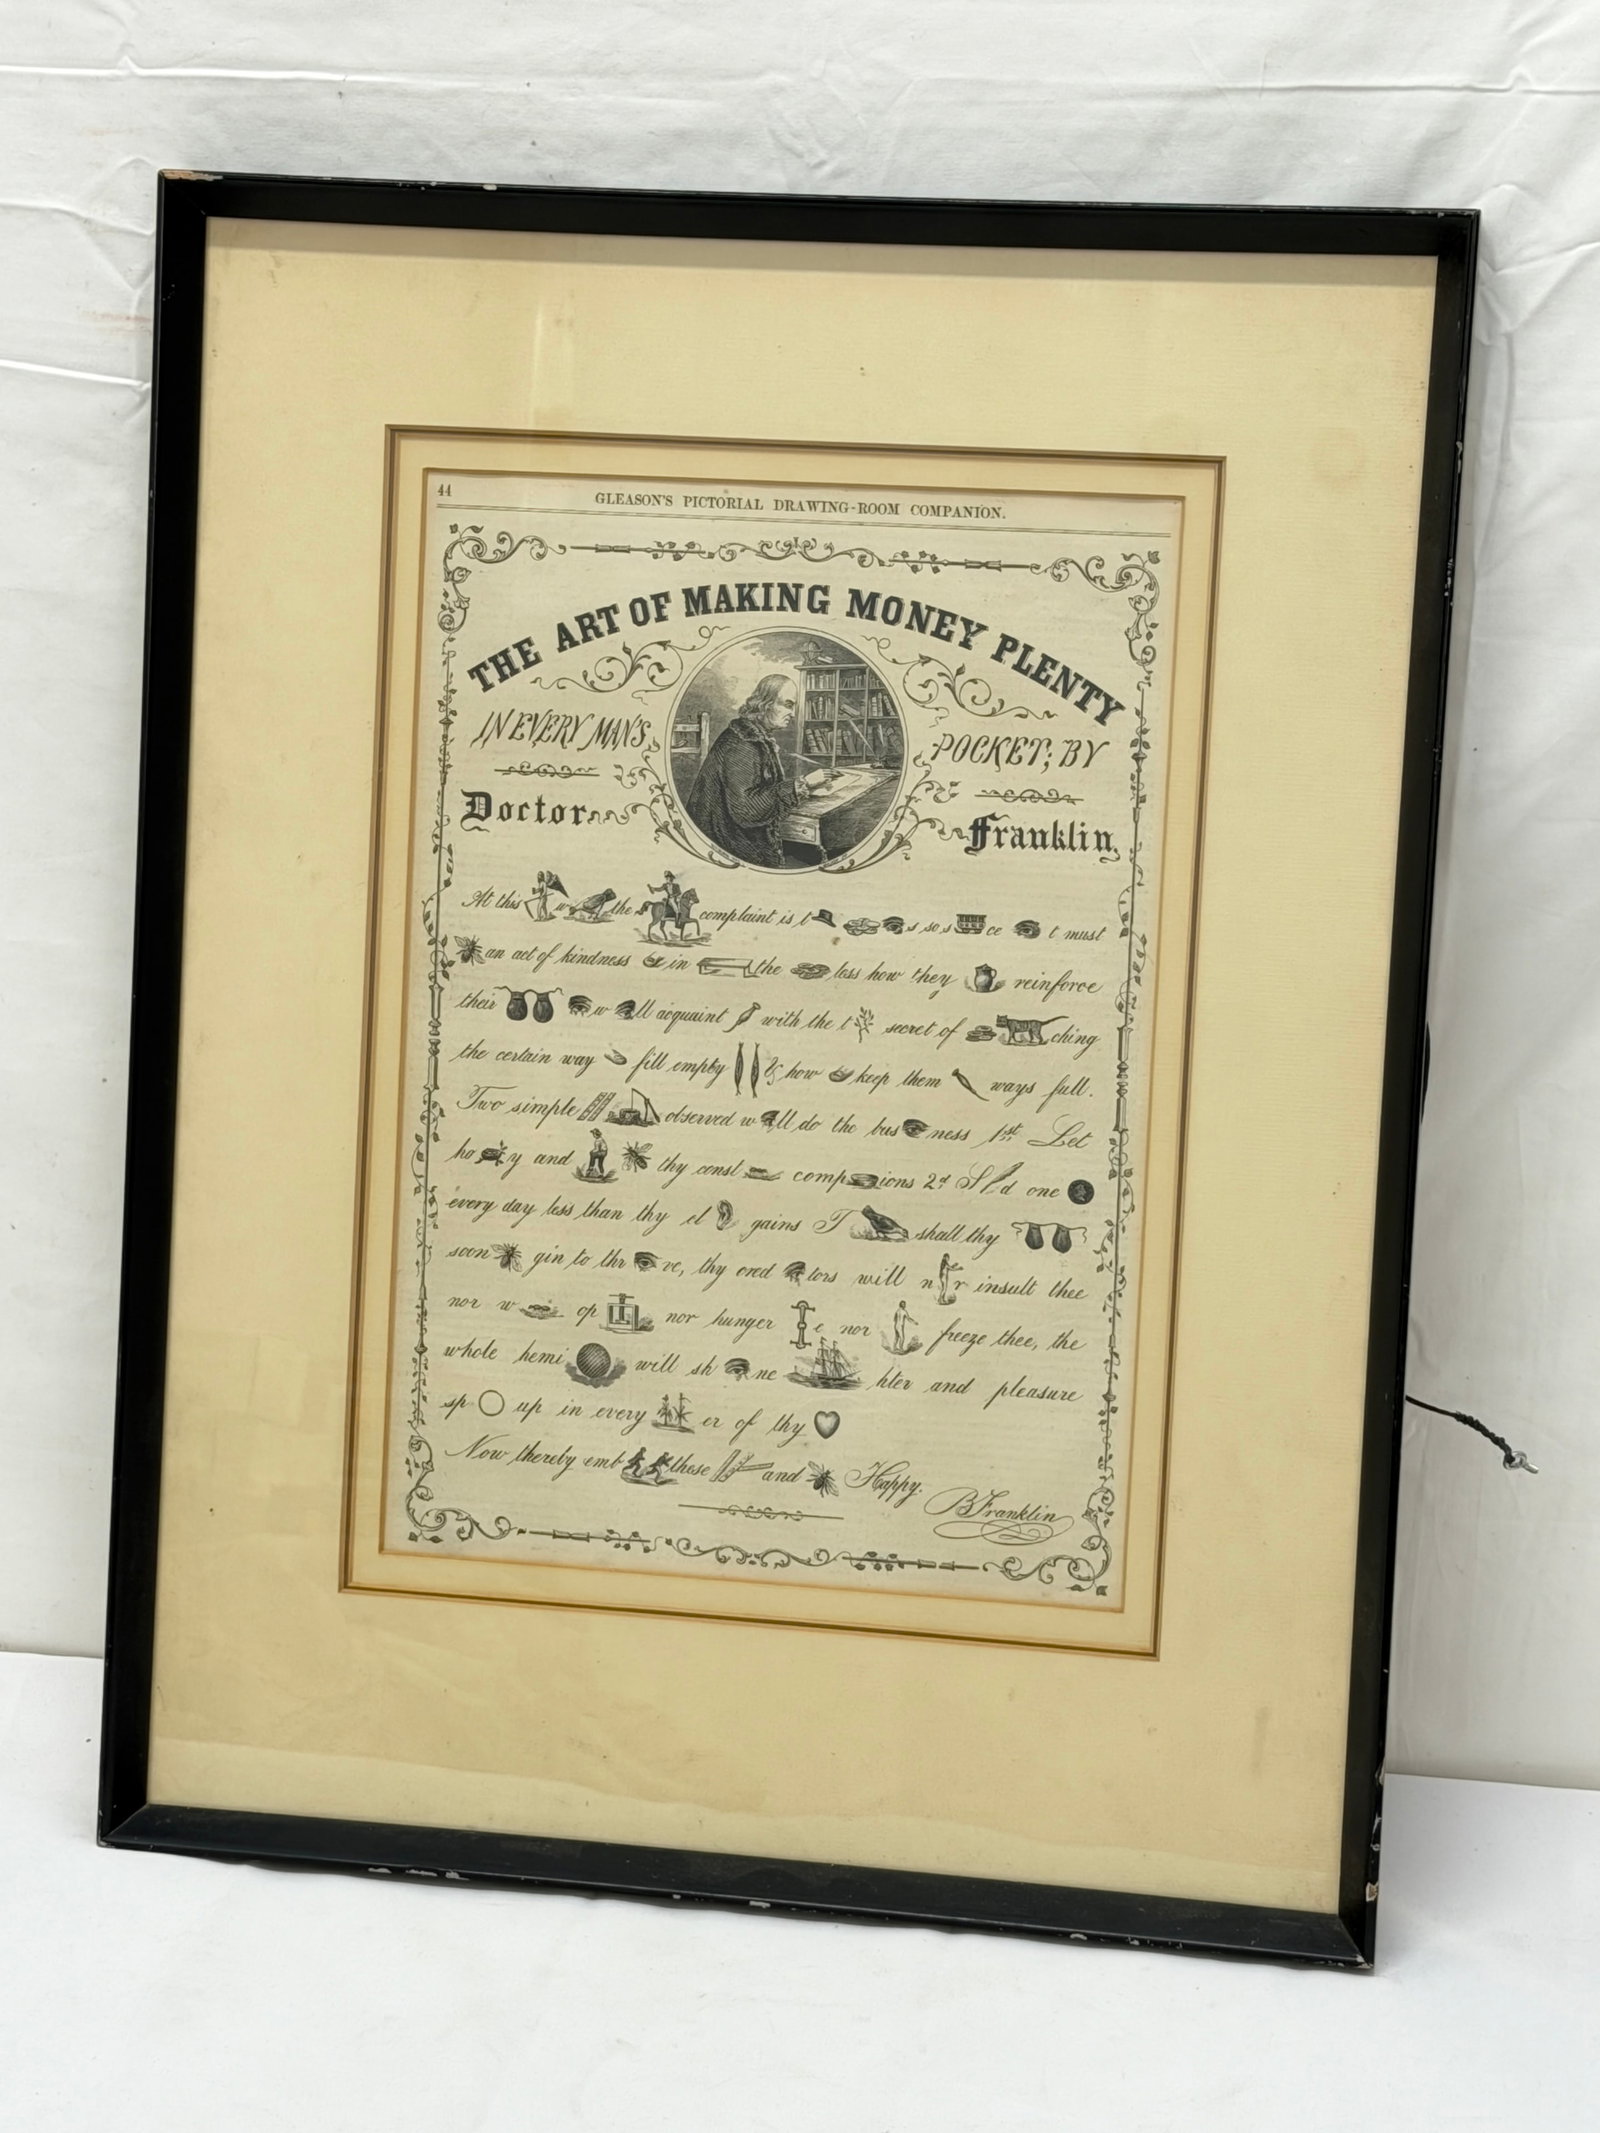 44
GLEASON'S PICTORIAL DRAWING-ROOM COMPANION.
THE ART OF MAKING MONEY PLENTY
IN EVERY MAN'S POCKET; BY
Doctor Franklin.
At this w the complaint is t s so s ce t must
an act of kindness in the less how they reinforce
their w ll acquaint with the t secret of ching
the certain way fill empty & how keep them ways full.
Two simple observed w ll do the bus ness 1st Let
ho y and thy const comp ions 2d S d one
every day less than thy cl gains T shall thy
soon gin to thr ve, thy cred tors will n r insult thee
nor w op nor hunger e nor freeze thee, the
whole hemi will sh ne hter and pleasure
sp up in every er of thy
Now thereby emb these and Happy.
B Franklin